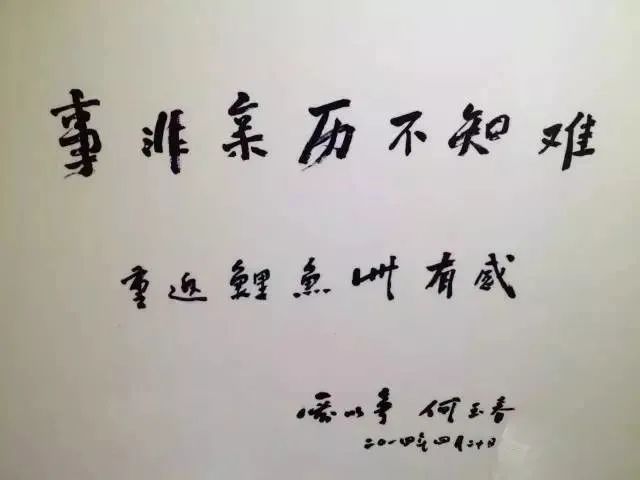 事非亲历不知难
重返鲤鱼洲有感
以孝 何玉春
二〇一四年四月二十日